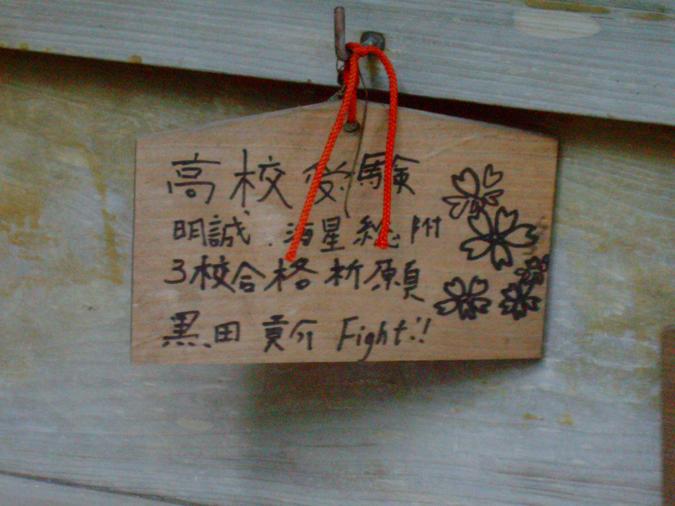 高校受験
明誠、海星、総附
3校合格祈願
黒田貢介 Fight!!